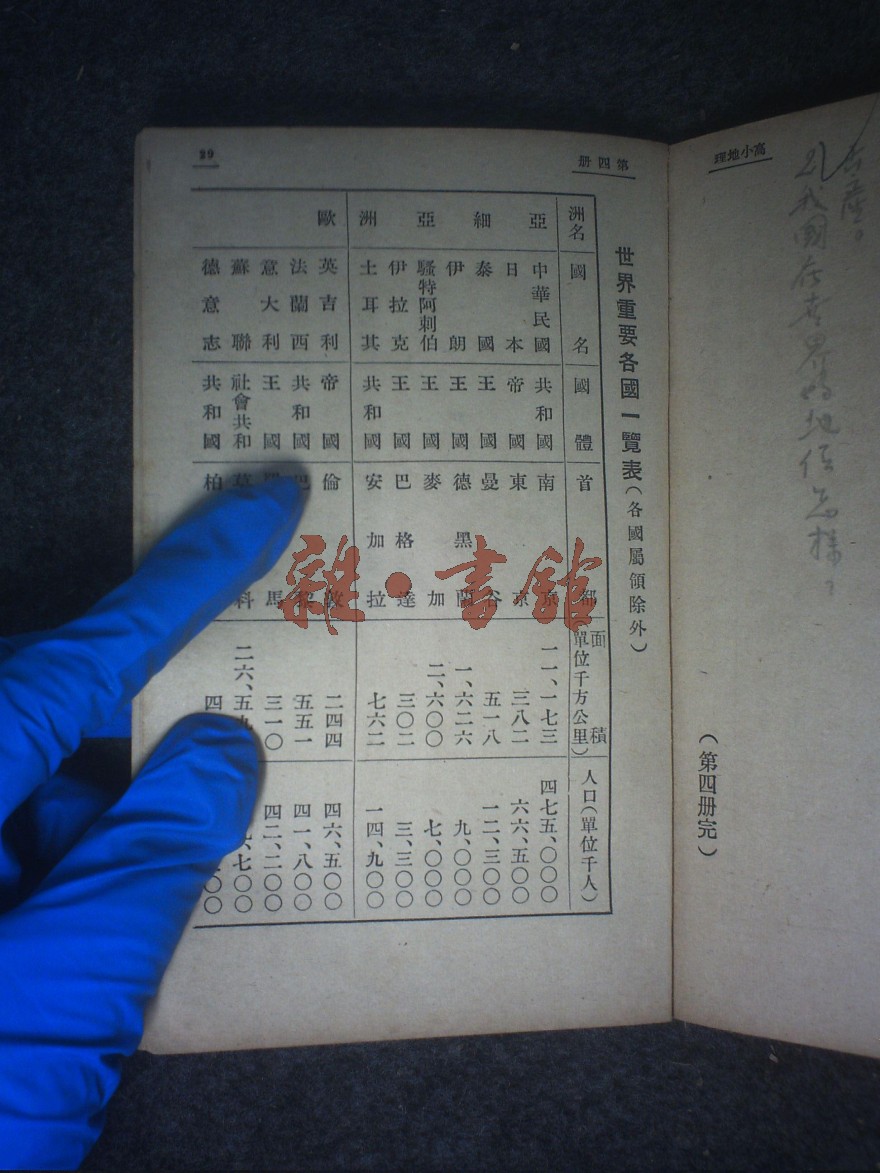 高小地理
21 我國在世界的地位怎樣?
(第四册完)
第四册
29
世界重要各國一覽表(各國屬領除外)
洲名 國名 國體 首都 面積(單位千方公里) 人口(單位千人)
亞細亞洲
中華民國 共和國 南京 一一、一七三 四七五、〇〇〇
日本 帝國 東京 三八二 六六、五〇〇
泰國 王國 曼谷 五一八 一二、三〇〇
伊朗 王國 德黑蘭 一、六二六 九、〇〇〇
騷特阿剌伯 王國 麥加 二、六〇〇 七、〇〇〇
伊拉克 王國 巴格達 三〇二 三、三〇〇
土耳其 共和國 安加拉 七六二 一四、九〇〇
歐
英吉利 帝國 倫敦 二四四 四六、五〇〇
法蘭西 共和國 巴黎 五五一 四一、八〇〇
意大利 王國 馬 三一〇 四二、二〇〇
蘇聯 社會共和 莫科 二六、五 、七〇〇
德意志 共和國 柏 四 〇〇
雜·書館